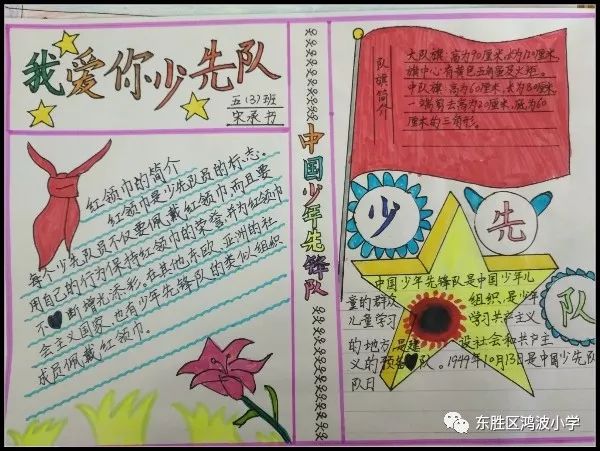 我爱你少先队
五(3)班
宋承书
红领巾的简介
红领巾是少先队员的标志。
每个少先队员不仅要佩戴红领巾而且要
用自己的行为保持红领巾的荣誉并为红领巾
不断增光添彩。在其他东欧、亚洲的社
会主义国家,也有少年先锋队的类似组织
成员佩戴红领巾。
中国少年先锋队
队旗简介
大队旗:高为90厘米,长为120厘米,
旗中心有黄色五角星及火炬。
中队旗:高为60厘米,长为80厘米,
一端剪去高为20厘米,底为60
厘米的三角形。
少
先
队
中国少年先锋队是中国少年儿
童的群众组织,是少年
儿童学习学习共产主义
的地方,是建设社会和共产主
义的预备队。1949年10月13日是中国少先队
队日
东胜区鸿波小学